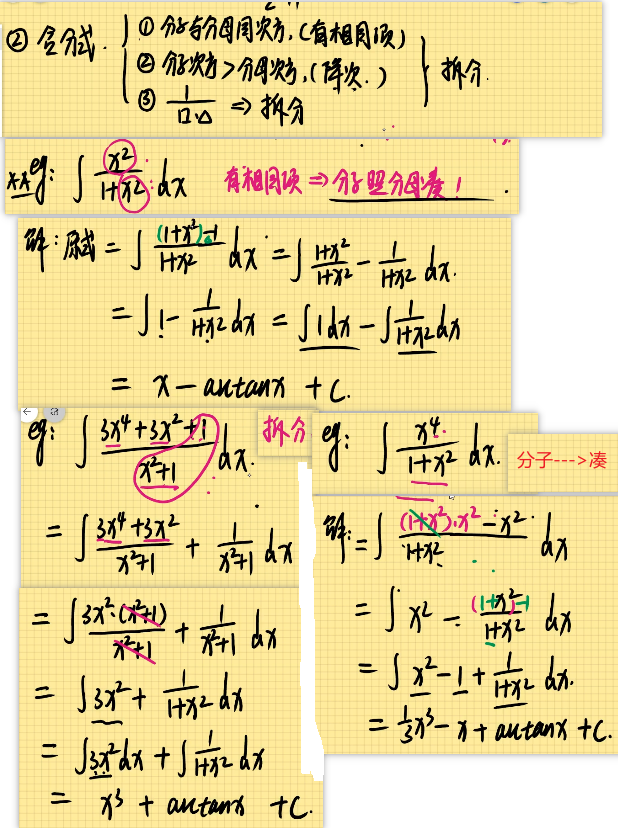 ② 含分式. ① 分子与分母同次方, (有相同项)
② 分子次方 > 分母次方, (降次.)
③ 1/(□·△) ⇒ 拆分
拆分.
※※ eg: ∫ x²/(1+x²) dx 有相同项 ⇒ 分子照分母凑!
解: 原式 = ∫ ((1+x²)-1)/(1+x²) dx = ∫ (1+x²)/(1+x²) - 1/(1+x²) dx.
= ∫ 1 - 1/(1+x²) dx = ∫ 1dx - ∫ 1/(1+x²) dx
= x - arctanx + C.
eg: ∫ (3x⁴+3x²+1)/(x²+1) dx. 拆分
= ∫ (3x⁴+3x²)/(x²+1) + 1/(x²+1) dx
= ∫ 3x²·(x²+1)/(x²+1) + 1/(x²+1) dx
= ∫ 3x² + 1/(1+x²) dx
= ∫ 3x²dx + ∫ 1/(1+x²) dx
= x³ + arctanx + C.
eg: ∫ x⁴/(1+x²) dx. 分子--->凑
解: = ∫ ((1+x²)·x² - x²)/(1+x²) dx
= ∫ x² - ((1+x²)-1)/(1+x²) dx
= ∫ x² - 1 + 1/(1+x²) dx.
= 1/3 x³ - x + arctanx + C.